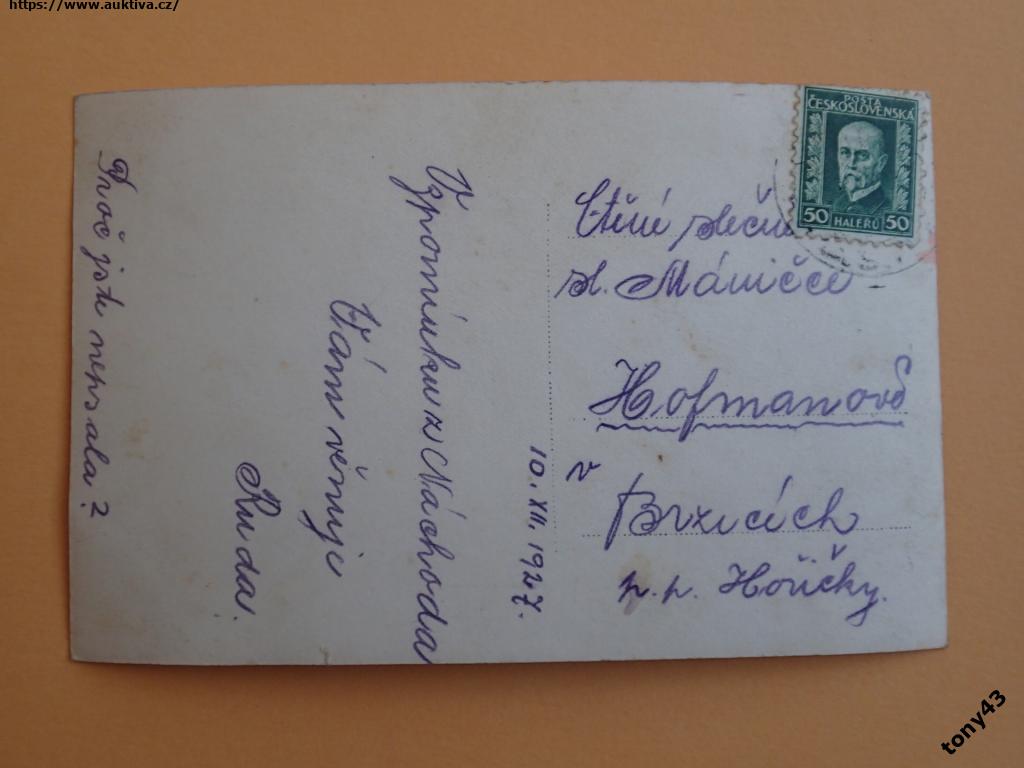 https://www.auktiva.cz/
Proč jste nepsala?
Vzpomínku z Náchoda
Vám věnuje
Ruda.
10. XII. 1927.
POŠTA
ČESKOSLOVENSKÁ
50 HALÉŘŮ 50
Ctěné
sl. Máničce
Hofmanově
v
Brzicích
p.p. Hořičky.
tony43